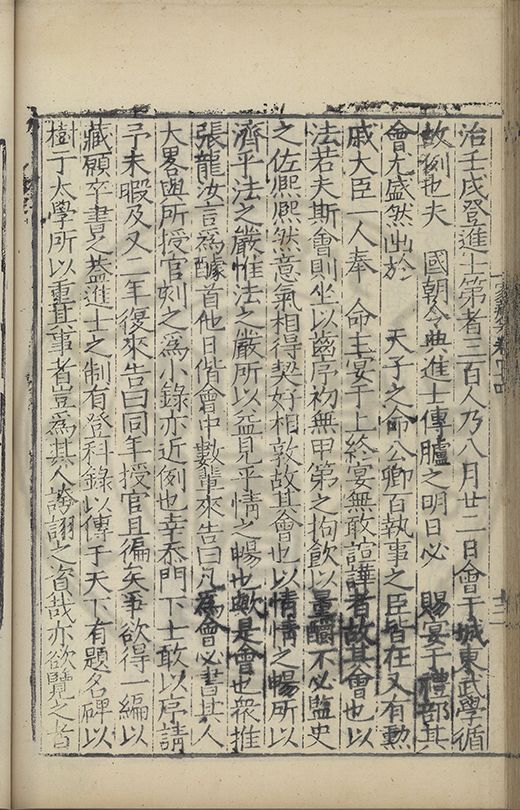 治壬戌登進士第者三百人乃八月廿二日會于城東武學循
故例也夫　國朝令典進士傳臚之明日必　賜宴于禮部其
會尤盛然出於　天子之命公卿百執事之臣皆在又有勲
戚大臣一人奉　命主宴于上終宴無敢諠譁者故其會也以
法若夫斯會則坐以齒序初無甲第之拘飲以量釂不必監史
之佐熈熈然意氣相得契好相敦故其會也以情情之暢所以
濟乎法之嚴惟法之嚴所以益見乎情之暢也歟是會也衆推
張龍汝言爲醵首他日偕會中數輩來告曰凡爲會必書其人
大畧與所授官刻之爲小錄亦近例也幸忝門下士敢以序請
予未暇及又二年復來告曰同年授官且徧矣亟欲得一編以
藏願卒書之葢進士之制有登科錄以傳于天下有題名碑以
樹于太學所以重其事者豈爲其人誇詡之資哉亦欲覽之者